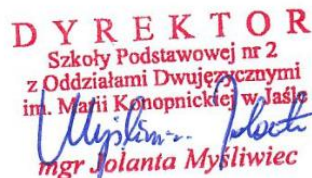 DYREKTOR
Szkoły Podstawowej nr 2
z Oddziałami Dwujęzycznymi
im. Marii Konopnickiej w Jaśle
mgr Jolanta Myśliwiec